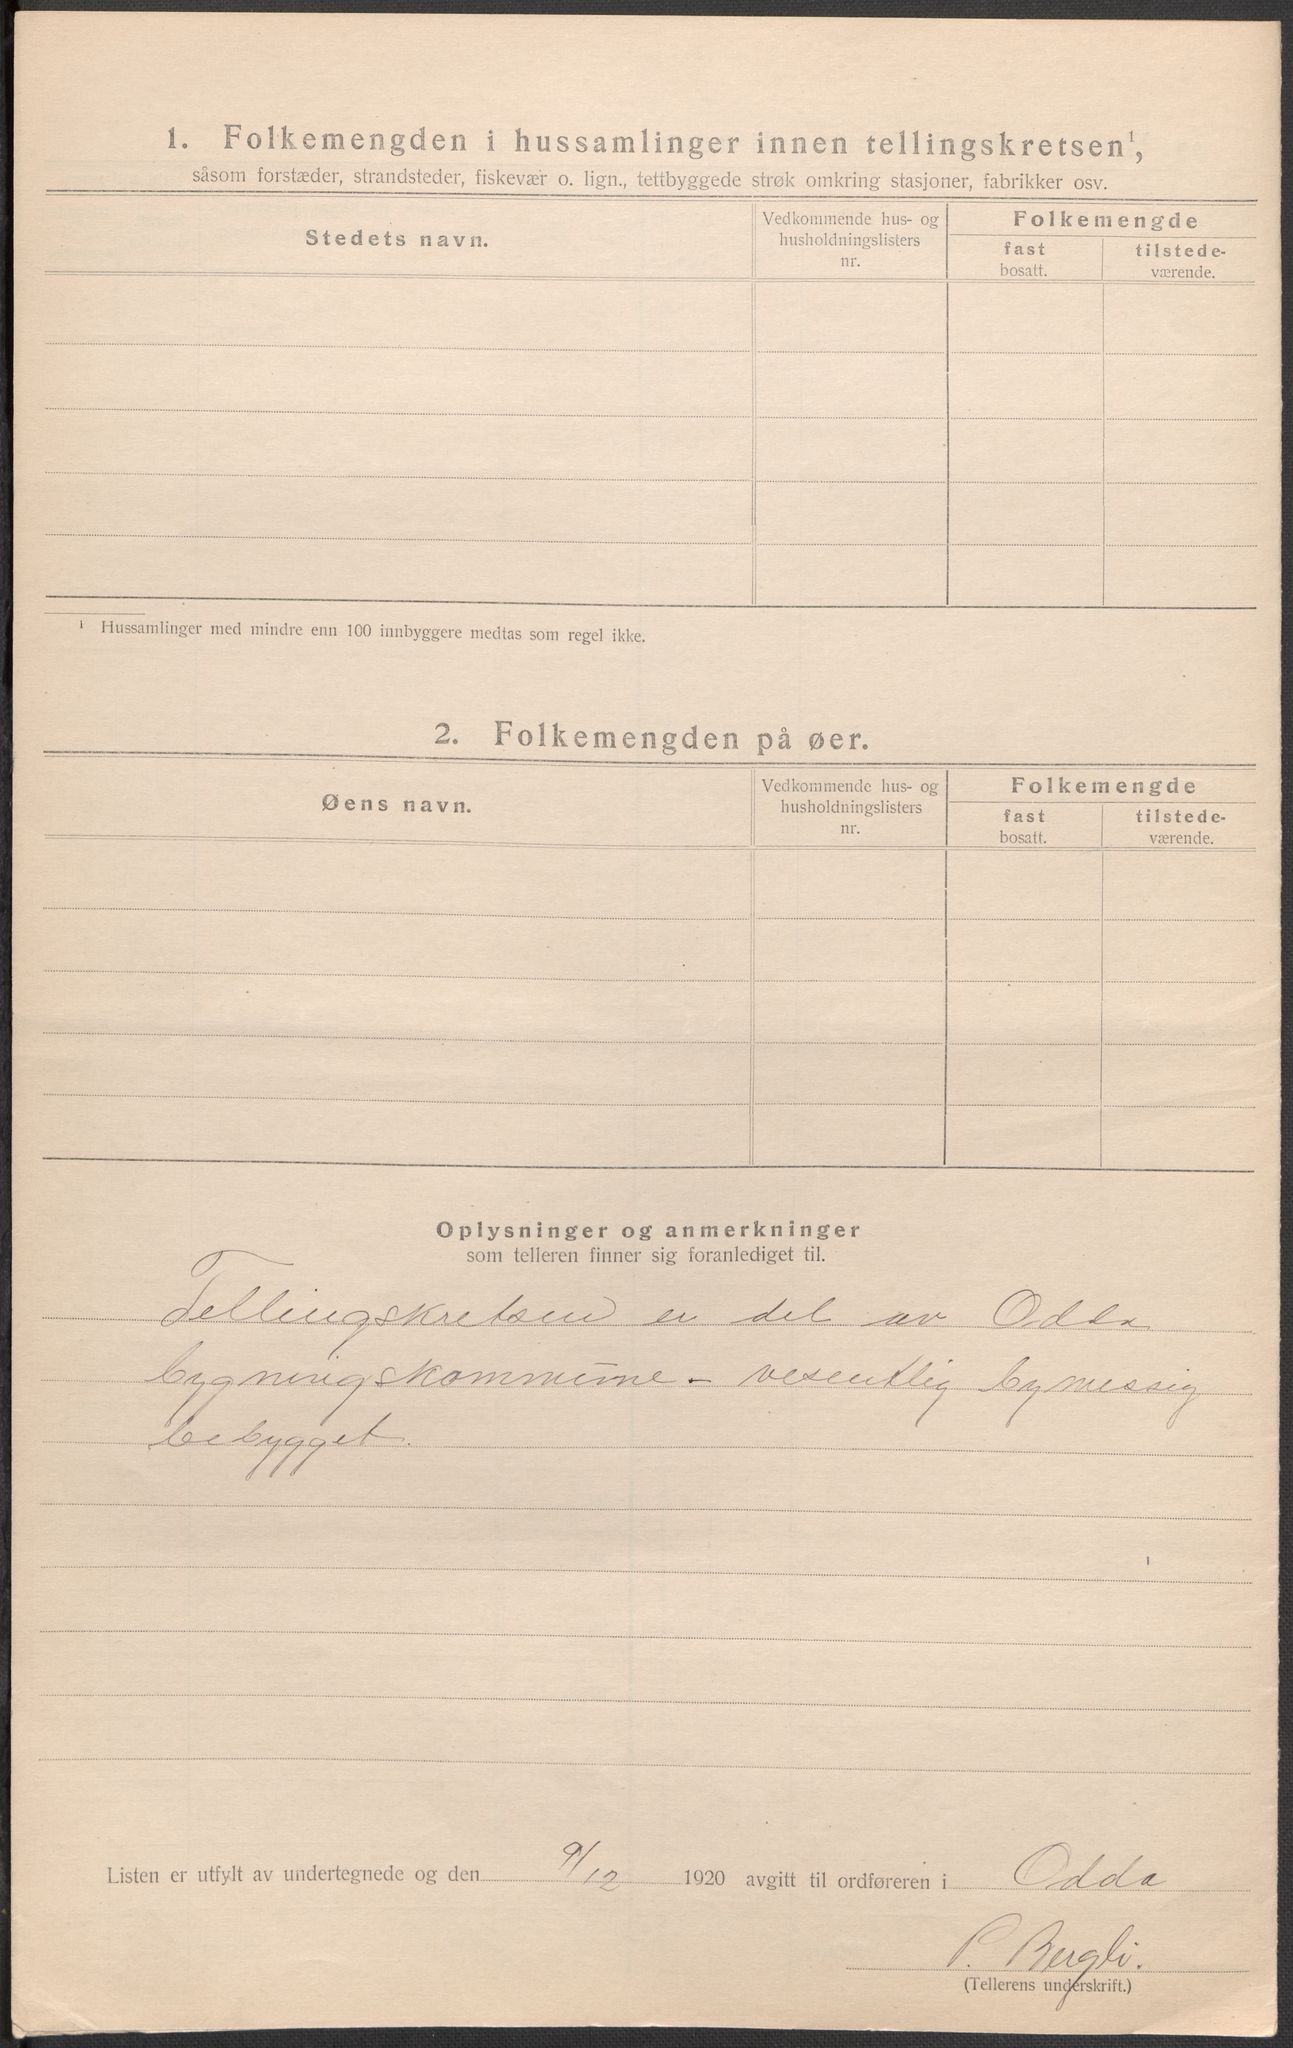 1. Folkemengden i hussamlinger innen tellingskretsen¹,
såsom forstæder, strandsteder, fiskevær o. lign., tettbyggede strøk omkring stasjoner, fabrikker osv.
Stedets navn.
Vedkommende hus- og
husholdningslisters
nr.
Folkemengde
fast
bosatt.
tilstede-
værende.
¹ Hussamlinger med mindre enn 100 innbyggere medtas som regel ikke.
2. Folkemengden på øer.
Øens navn.
Vedkommende hus- og
husholdningslisters
nr.
Folkemengde
fast
bosatt.
tilstede-
værende.
Oplysninger og anmerkninger
som telleren finner sig foranlediget til.
Tellingskretsen er del av Odda
bygningskommune - vesentlig bymessig
bebygget.
Listen er utfylt av undertegnede og den 9/12 1920 avgitt til ordføreren i Odda
P. Bergli.
(Tellerens underskrift.)